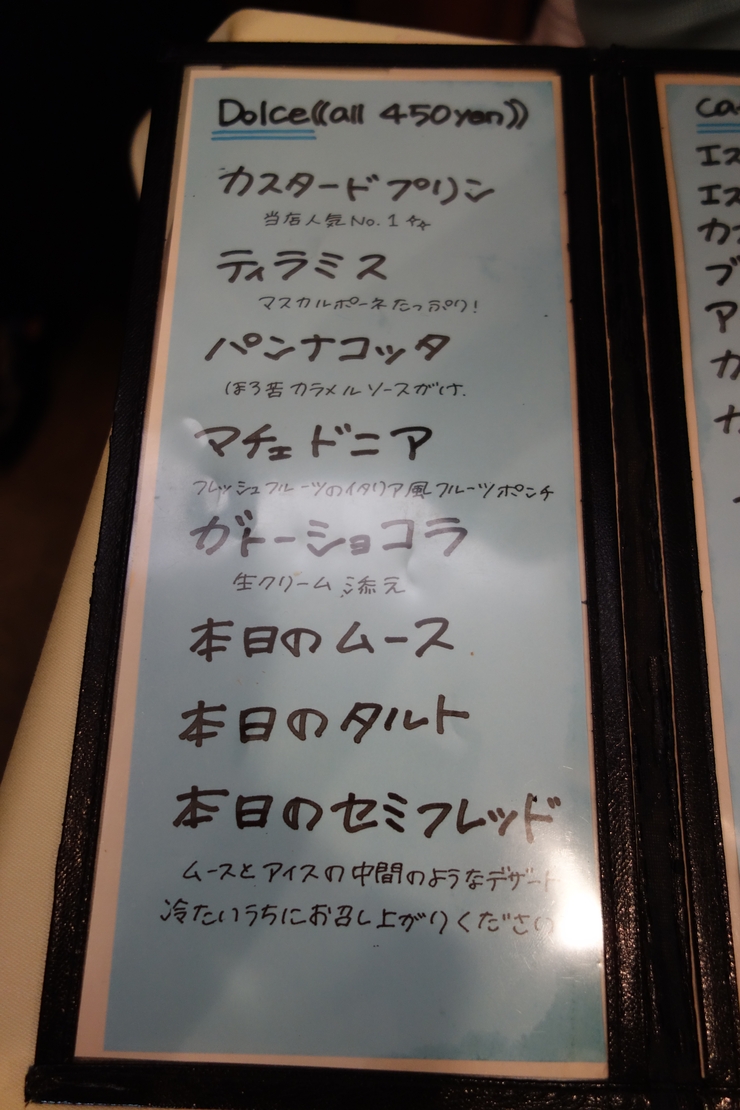 Dolce((all 450yen))
カスタードプリン
当店人気No.1☆☆
ティラミス
マスカルポーネたっぷり!
パンナコッタ
ほろ苦カラメルソースがけ.
マチェドニア
フレッシュフルーツのイタリア風フルーツポンチ
ガトーショコラ
生クリーム添え
本日のムース
本日のタルト
本日のセミフレッド
ムースとアイスの中間のようなデザート
冷たいうちにお召し上がりくださ
Ca
エス
エス
カ
ブ
ア
カ